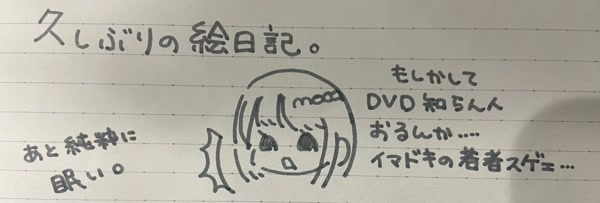 久しぶりの絵日記。
もしかして
DVD知らん人
おるんか....
イマドキの若者スゲェ...
あと純粋に
眠い。